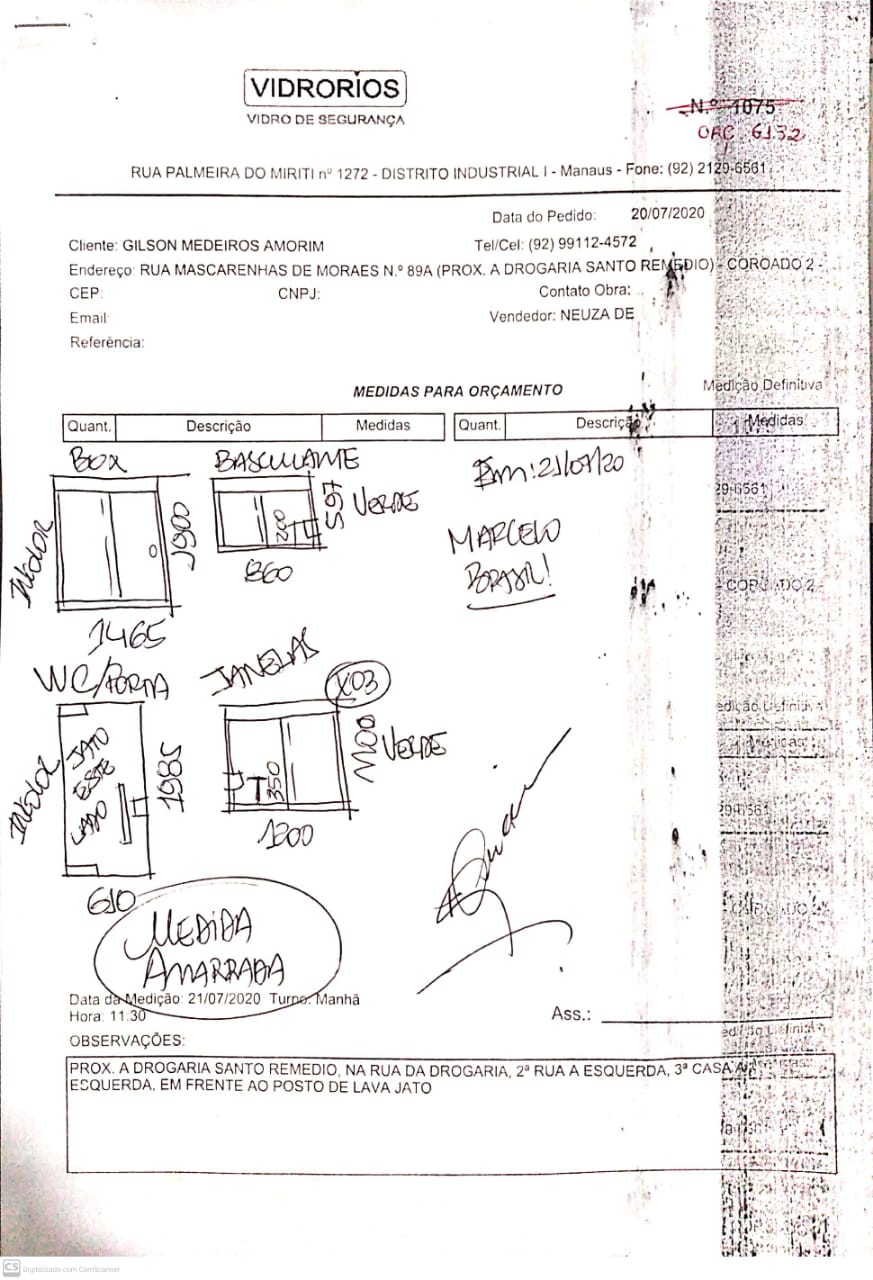 VIDRORIOS
VIDRO DE SEGURANÇA
N.º 1075
ORC 6132
RUA PALMEIRA DO MIRITI nº 1272 - DISTRITO INDUSTRIAL I - Manaus - Fone: (92) 2129-6561
Data do Pedido: 20/07/2020
Cliente: GILSON MEDEIROS AMORIM Tel/Cel: (92) 99112-4572
Endereço: RUA MASCARENHAS DE MORAES N.º 89A (PROX. A DROGARIA SANTO REMEDIO) - COROADO 2 -
CEP: CNPJ: Contato Obra:
Email: Vendedor: NEUZA DE
Referência:
MEDIDAS PARA ORÇAMENTO Medição Definitiva
Quant. Descrição Medidas Quant. Descrição Medidas
BOX BASCULANTE Em: 21/07/20
29-6561
INCOLOR 1900 200 595 VERDE
860
MARCELO
BRASIL!
- COROADO 2 -
1465
WC/PORTA JANELAS X03
edição Definitiva
Medidas
INCOLOR JATO ESTE LADO 1985 350 1100 VERDE
1200
29-6561
610
- COROADO 2 -
MEDIDA
AMARRADA
Data da Medição: 21/07/2020 Turno: Manhã
Hora: 11:30 Ass.:
edição Definitiva
OBSERVAÇÕES:
PROX. A DROGARIA SANTO REMEDIO, NA RUA DA DROGARIA, 2ª RUA A ESQUERDA, 3ª CASA A
ESQUERDA, EM FRENTE AO POSTO DE LAVA JATO
CS Digitalizado com CamScanner